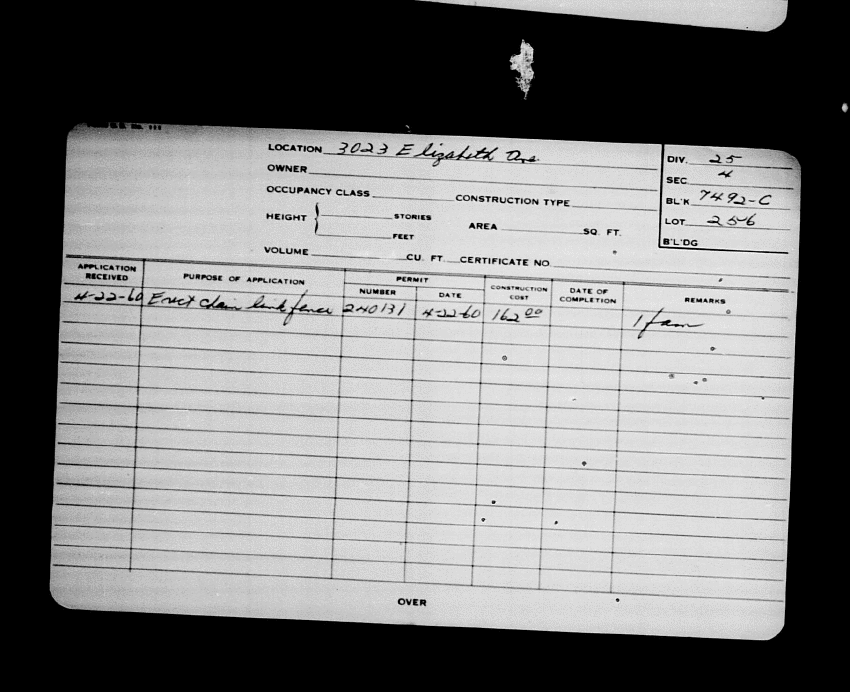 LOCATION 3023 Elizabeth Ave
OWNER
OCCUPANCY CLASS CONSTRUCTION TYPE
HEIGHT STORIES
FEET
AREA SQ. FT.
VOLUME CU. FT. CERTIFICATE NO.
DIV. 25
SEC 4
BL'K 7492-C
LOT 256
B'L'DG
APPLICATION RECEIVED PURPOSE OF APPLICATION PERMIT NUMBER DATE CONSTRUCTION COST DATE OF COMPLETION REMARKS
4-22-60 Erect chain link fence 240131 4-22-60 162 00 1 fam
OVER